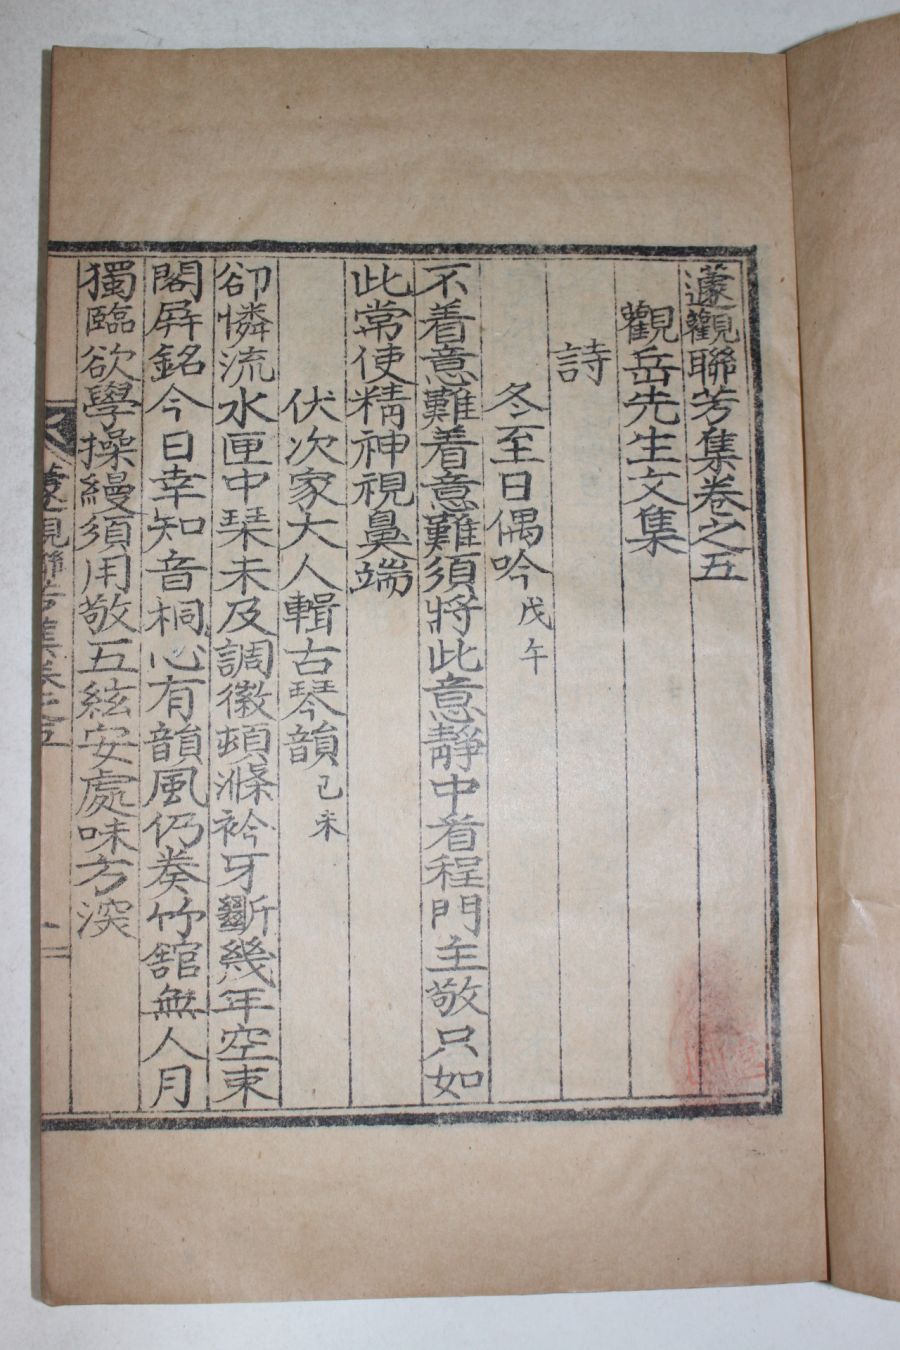 蘧觀聯芳集卷之五
觀岳先生文集
詩
冬至日偶吟 戊午
不着意難着意難須將此意靜中看程門主敬只如
此常使精神視鼻端
伏次家大人輯古琴韻 己未
卻憐流水匣中琹未及調徽頓滌衿牙斷幾年空束
閣屛銘今日幸知音桐心有韻風仍奏竹舘無人月
獨臨欲學操縵須用敬五絃安處味方深